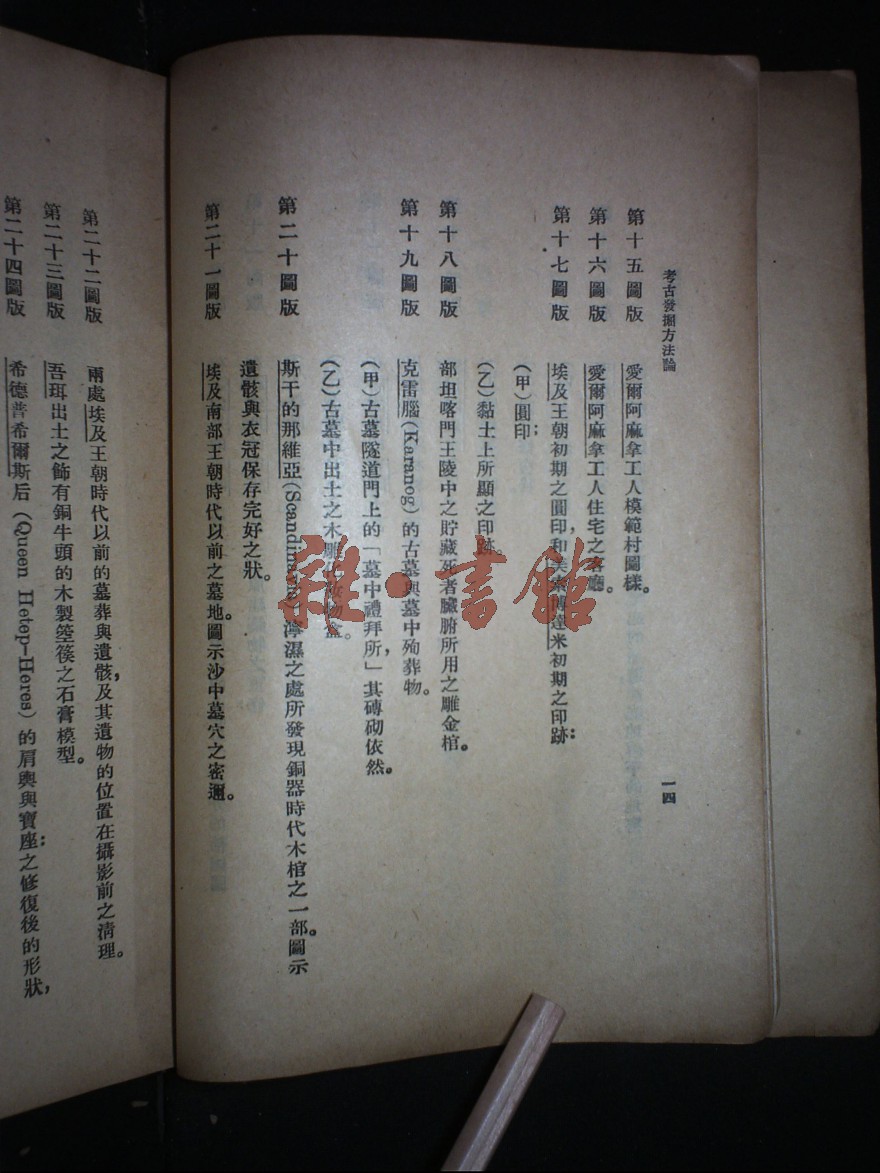 考古發掘方法論
一四
第十五圖版 愛爾阿麻拿工人模範村圖樣。
第十六圖版 愛爾阿麻拿工人住宅之客廳。
第十七圖版 埃及王朝初期之圓印，和美索博達米初期之印跡：
(甲)圓印；
(乙)黏土上所顯之印跡。
第十八圖版 部坦喀門王陵中之貯藏死者臟腑所用之雕金棺。
第十九圖版 克雷腦(Karanog)的古墓與墓中殉葬物。
(甲)古墓隧道門上的「墓中禮拜所」，其磚砌依然。
(乙)古墓中出土之木雕 物盒。
第二十圖版 斯干的那維亞(Scandinavia)濘濕之處所發現銅器時代木棺之一部。圖示
遺骸與衣冠保存完好之狀。
第二十一圖版 埃及南部王朝時代以前之墓地。圖示沙中墓穴之密邇。
第二十二圖版 兩處埃及王朝時代以前的墓葬與遺骸，及其遺物的位置在攝影前之清理。
第二十三圖版 吾珥出土之飾有銅牛頭的木製箜篌之石膏模型。
第二十四圖版 希德普希爾斯后(Queen Hetep-Heres)的肩輿與寶座之修復後的形狀，
雜·書館